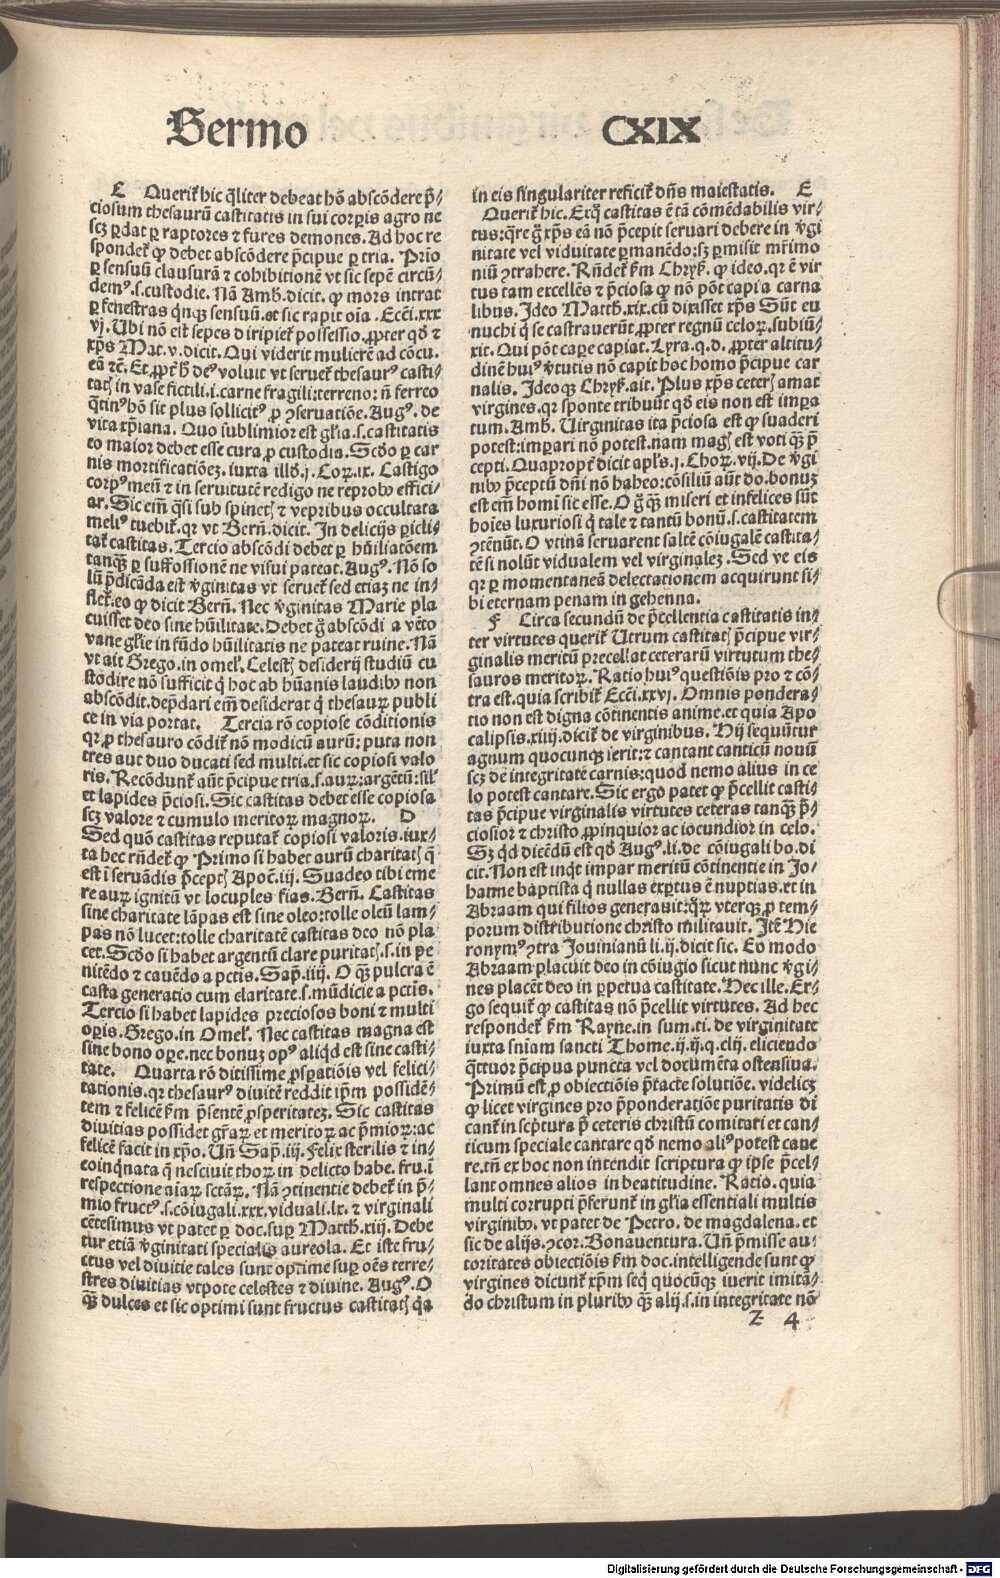 Sermo CXIX
C Querit᷑ hic q̄liter debeat hō abscōdere p̄⸗
ciosum thesaurū castitatis in sui corꝑis agro ne
scꝫ ꝑdat ꝑ raptores ⁊ fures demones. Ad hoc re
spondet᷑ ꝙ debet abscōdere p̄cipue ꝑ tria. Prīo
ꝑ sensuū clausurā ⁊ cohibitionē vt sic sepē circū⸗
demꝰ.s.custodie. Nā Amb.dicit. ꝙ mors intrat
ꝑ fenestras qnqꝫ sensuū.et sic rapit oīa. Ecci.xxx
vj. Ubi nō est sepes diripiet᷑ possessio.ꝓpter qd̄ ⁊
xp̄s Mat.v.dicit. Qui viderit mulierē ad cōcu.
eā ⁊c̄. Et ꝓpt̄ h̄ deꝰ voluit vt seruet᷑ thesaurꝰ casti⸗
tatꝭ in vase fictili.i.carne fragili:terreno: n̄ ferreo
q̄tinꝰ hō sit plus sollicitꝰ ꝓ ꝯseruatiōe. Augꝰ. de
vita xp̄iana. Quo sublimior est gl̄ia.s.castitatis
eo maior debet esse cura ꝓ custodia. Scd̄o ꝑ car
nis mortificatiōeꝫ. iuxta illd̄.j. Corꝝ.ix. Castigo
corpꝰ meū ⁊ in seruitutē redigo ne reprobꝰ effici⸗
ar. Sic em̄ q̄si sub spinetꝭ ⁊ vepribus occultata
meliꝰ tuebit᷑.qꝛ vt Bern̄.dicit. In delicijs ꝑicli⸗
tat᷑ castitas. Tercio abscōdi debet ꝑ hūiliatōem
tanqꝫ ꝑ suffossionē ne visui pateat. Augꝰ. Nō so
lū p̄dicāda est v̄ginitas vt seruet᷑ sed etiaꝫ ne in⸗
flet᷑.eo ꝙ dicit Bern̄. Nec v̄ginitas Marie pla
cuisset deo sine hūilitate. Debet ḡ abscōdi a vēto
vane gl̄ie in fūdo hūilitatis ne pateat ruine. Nā
vt ait Grego.in omel᷑. Celestꝭ desiderij studiū cu
stodire nō sufficit q̇ hoc ab hūanis laudibꝰ non
abscōdit.dep̄dari em̄ desiderat q̇ thesauꝝ publi
ce in via portat. Tercia rō copiose cōditionis
qꝛ ꝓ thesauro cōdit᷑ nō modicū aurū: puta non
tres aut duo ducati sed multi.et sic copiosi valo
ris. Recōdunt᷑ aūt p̄cipue tria.s.auꝝ:argētū:sil᷑
et lapides p̄ciosi. Sic castitas debet esse copiosa
scꝫ valore ⁊ cumulo meritoꝝ magnoꝝ. D
Sed quō castitas reputat᷑ copiosi valoris.iux⸗
ta hec rn̄det᷑ ꝙ Primo si habet aurū charitatꝭ q̄
est ī seruādis p̄ceptꝭ Apoc̄.iij. Suadeo tibi eme
re auꝝ ignitū vt locuples fias. Bern̄. Castitas
sine charitate lāpas est sine oleo:tolle oleū lam⸗
pas nō lucet:tolle charitatē castitas deo nō pla
cet. Scd̄o si habet argentū clare puritatꝭ.s.in pe
nitēdo ⁊ cauēdo a pctīs. Sap̄.iiij. O qꝫ pulcra ē
casta generatio cum claritate.s.mūdicie a pctīs.
Tercio si habet lapides preciosos boni ⁊ multi
oꝑis. Grego.in Omel᷑. Nec castitas magna est
sine bono oꝑe.nec bonuꝫ opꝰ aliqd̄ est sine casti⸗
tate. Quarta rō ditissime ꝓsꝑatiōis vel felici⸗
tationis.qꝛ thesaurꝰ diuitē reddit ip̄m possidē⸗
tem ⁊ felicē ẜm p̄sentē ꝓsperitateꝫ. Sic castitas
diuitias possidet gr̄aꝝ et meritoꝝ ac p̄mioꝝ:ac
felicē facit in xp̄o. Un̄ Sap̄.iij. Felix sterilis ⁊ in⸗
coinq̄nata q̄ nesciuit thoꝝ in delicto habe. fru.ī
respectione aīaꝝ sctāꝝ. Nā ꝯtinentie debet᷑ in p̄⸗
mio fructꝰ.s.cōiugali.xxx.viduali.lx. ⁊ virginali
cētesimus vt patet ꝑ doc.suꝑ Matth.xiij. Debe
tur etiā v̄ginitati specialis aureola. Et iste fru⸗
ctus vel diuitie tales sunt optime suꝑ oēs terre⸗
stres diuitias vtpote celestes ⁊ diuine. Augꝰ. O
qꝫ dulces et sic optimi sunt fructus castitatꝭ q̇a
in eis singulariter reficit᷑ dn̄s maiestatis. E
Querit᷑ hic. Ecꝙ castitas ē tā cōmēdabilis vir⸗
tus:q̄re ḡ xp̄s eā nō p̄cepit seruari debere in v̄gi
nitate vel viduitate ꝑmanēdo:sꝫ ꝑmisit mr̄imo
niū ꝯtrahere. Rn̄det᷑ ẜm Chryẜ. ꝙ ideo.qꝛ ē vir
tus tam excellēs ⁊ p̄ciosa ꝙ nō pōt capi a carna
libus. Ideo Matth.xix.cū dixisset xp̄s Sūt eu
nuchi q̇ se castrauerūt ꝓpter regnū celoꝝ.subiū⸗
xit. Qui pōt caꝑe capiat. Lyra.q.d. ꝓpter altitu⸗
dinē huiꝰ v̄tutis nō capit hoc homo p̄cipue car
nalis. Ideoqꝫ Chryẜ.ait. Plus xp̄s ceterꝭ amat
virgines.qꝛ sponte tribuūt qd̄ eis non est impa
tum. Amb. Uirginitas ita p̄ciosa est ꝙ suaderi
potest:impari nō potest.nam magꝭ est voti qꝫ p̄
cepti. Quapropt̄ dicit apl̄s.j. Choꝝ.vij. De v̄gi
nibꝰ p̄ceptū dn̄i nō habeo:cōsiliū aūt do.bonuꝫ
est em̄ homī sic esse. O ḡ qꝫ miseri et infelices sūt
hoīes luxuriosi q̇ tale ⁊ tantū bonū.s.castitatem
ꝯtēnūt. O vtinā seruarent saltē cōiugalē castita⸗
tē si nolūt vidualem vel virginaleꝫ. Sed ve eis
qꝛ ꝑ momentaneā delectationem acquirunt si⸗
bi eternam penam in gehenna.
F Circa secundū de p̄cellentia castitatis in⸗
ter virtutes querit᷑ Utrum castitatꝭ p̄cipue vir⸗
ginalis meritū precellat ceterarū virtutum the⸗
sauros meritoꝝ. Ratio huiꝰ questiōis pro ⁊ cō⸗
tra est.quia scribit᷑ Ecci.xxvj. Omnis pondera⸗
tio non est digna cōtinentis anime.et quia Apo
calipsis.xiiij.dicit᷑ de virginibus. Hij sequūtur
agnum quocunqꝫ ierit:⁊ cantant canticū nouū
scꝫ de integritate carnis:quod nemo alius in ce
lo potest cantare. Sic ergo patet ꝙ p̄cellit casti⸗
tas p̄cipue virginalis virtutes ceteras tanqꝫ p̄⸗
ciosior ⁊ christo ꝓpinquior ac iocundior in celo.
Sꝫ qd̄ dicēdū est qd̄ Augꝰ.li.de cōiugali bo.di
cit. Non est inqt impar meritū cōtinentie in Jo⸗
hanne baptista q̇ nullas exꝑtus ē nuptias.et in
Abraam qui filios generauit:qꝝ vterqꝫ ꝓ tem⸗
porum distributione christo militauit. Itē Hie
ronymꝰ ꝯtra Jouinianū li.ij.dicit sic. Eo modo
Abraam placuit deo in cōiugio sicut nunc v̄gi⸗
nes placēt deo in ꝑpetua castitate. Hec ille. Er⸗
go sequit᷑ ꝙ castitas nō p̄cellit virtutes. Ad hec
respondet᷑ ẜm Rayne.in sum.ti. de virginitate
iuxta sn̄iam sancti Thome.ij.ij.q.clij. eliciendo
q̄ttuor p̄cipua puncta vel documēta ostensiua.
Primū est ꝓ obiectiōis p̄tacte solutiōe. videlicꝫ
ꝙ licet virgines pro p̄ponderatiōe puritatis di
cant᷑ in scp̄tura p̄ ceteris christū comitari et can⸗
ticum speciale cantare qd̄ nemo aliꝰ potest cane
re.tn̄ ex hoc non intendit scriptura ꝙ ipse p̄cel⸗
lant omnes alios in beatitudine. Ratio.quia
multi corrupti p̄ferunt᷑ in gl̄ia essentiali multis
virginibꝰ. vt patet de Petro. de magdalena. et
sic de alijs. ꝯcor. Bonauentura. Un̄ p̄misse au⸗
toritates obiectiōis ẜm doc.intelligende sunt ꝙ
virgines dicunt᷑ xp̄m seq̇ quocūqꝫ iuerit imitā⸗
do christum in pluribꝰ qꝫ alij.s.in integritate nō
z 4
Digitalisierung gefördert durch die Deutsche Forschungsgemeinschaft - DFG